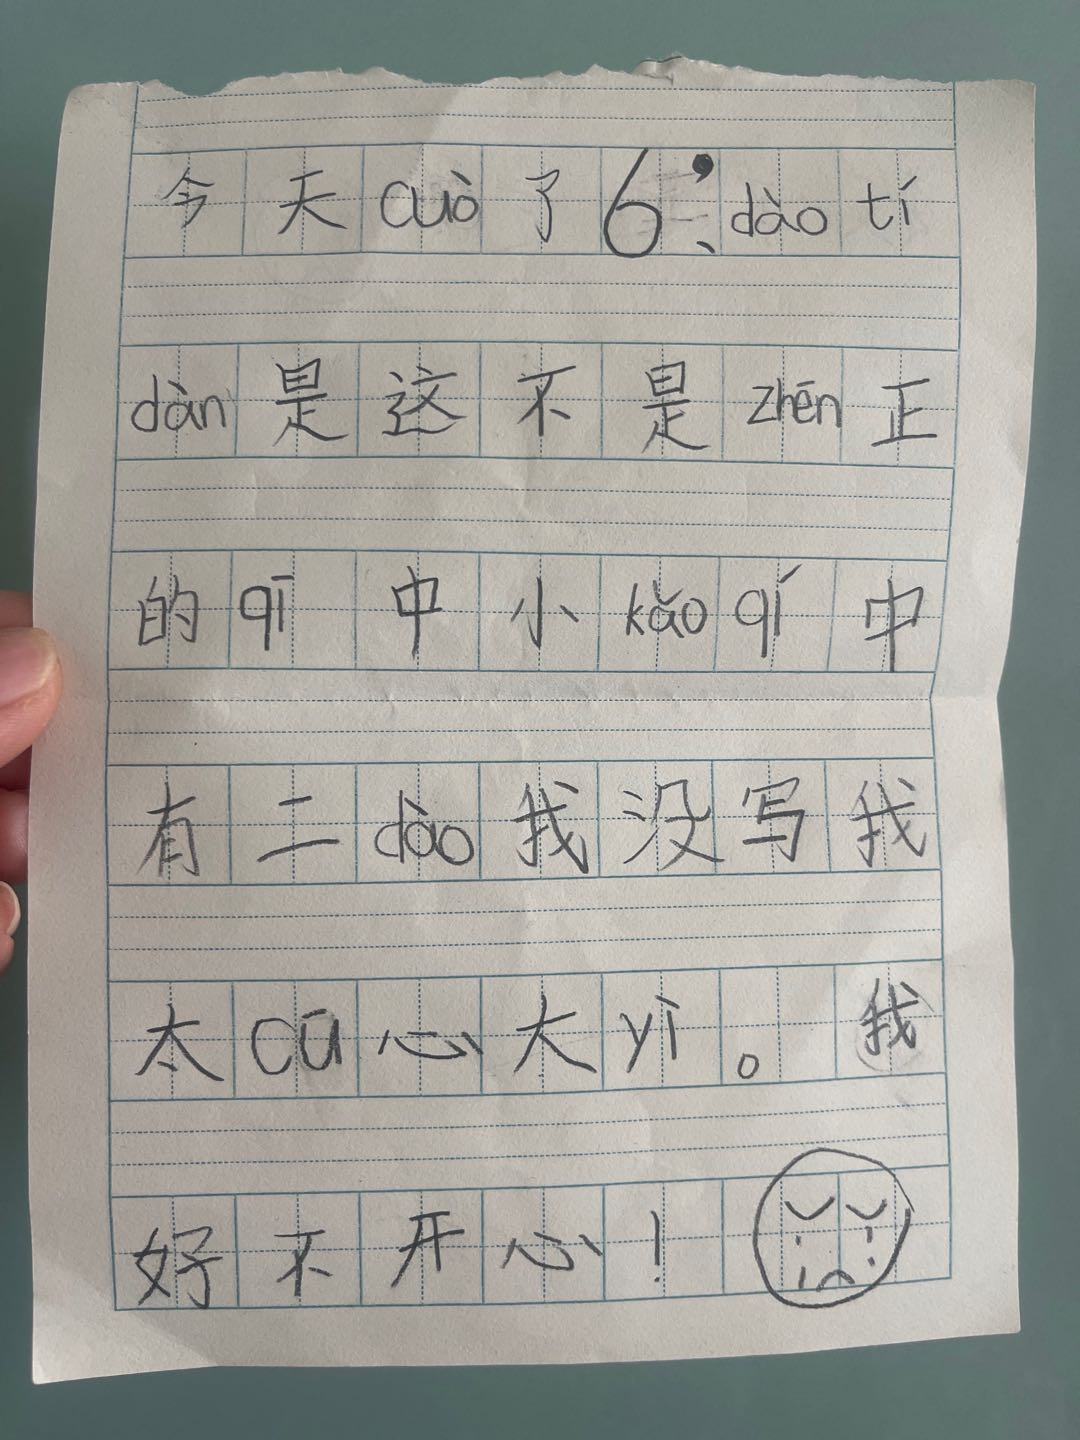 今天cuò了6、dào tí
dàn是这不是zhēn正
的qī中小kǎo qí中
有二dào我没写我
太cū心大yì。我
好不开心！